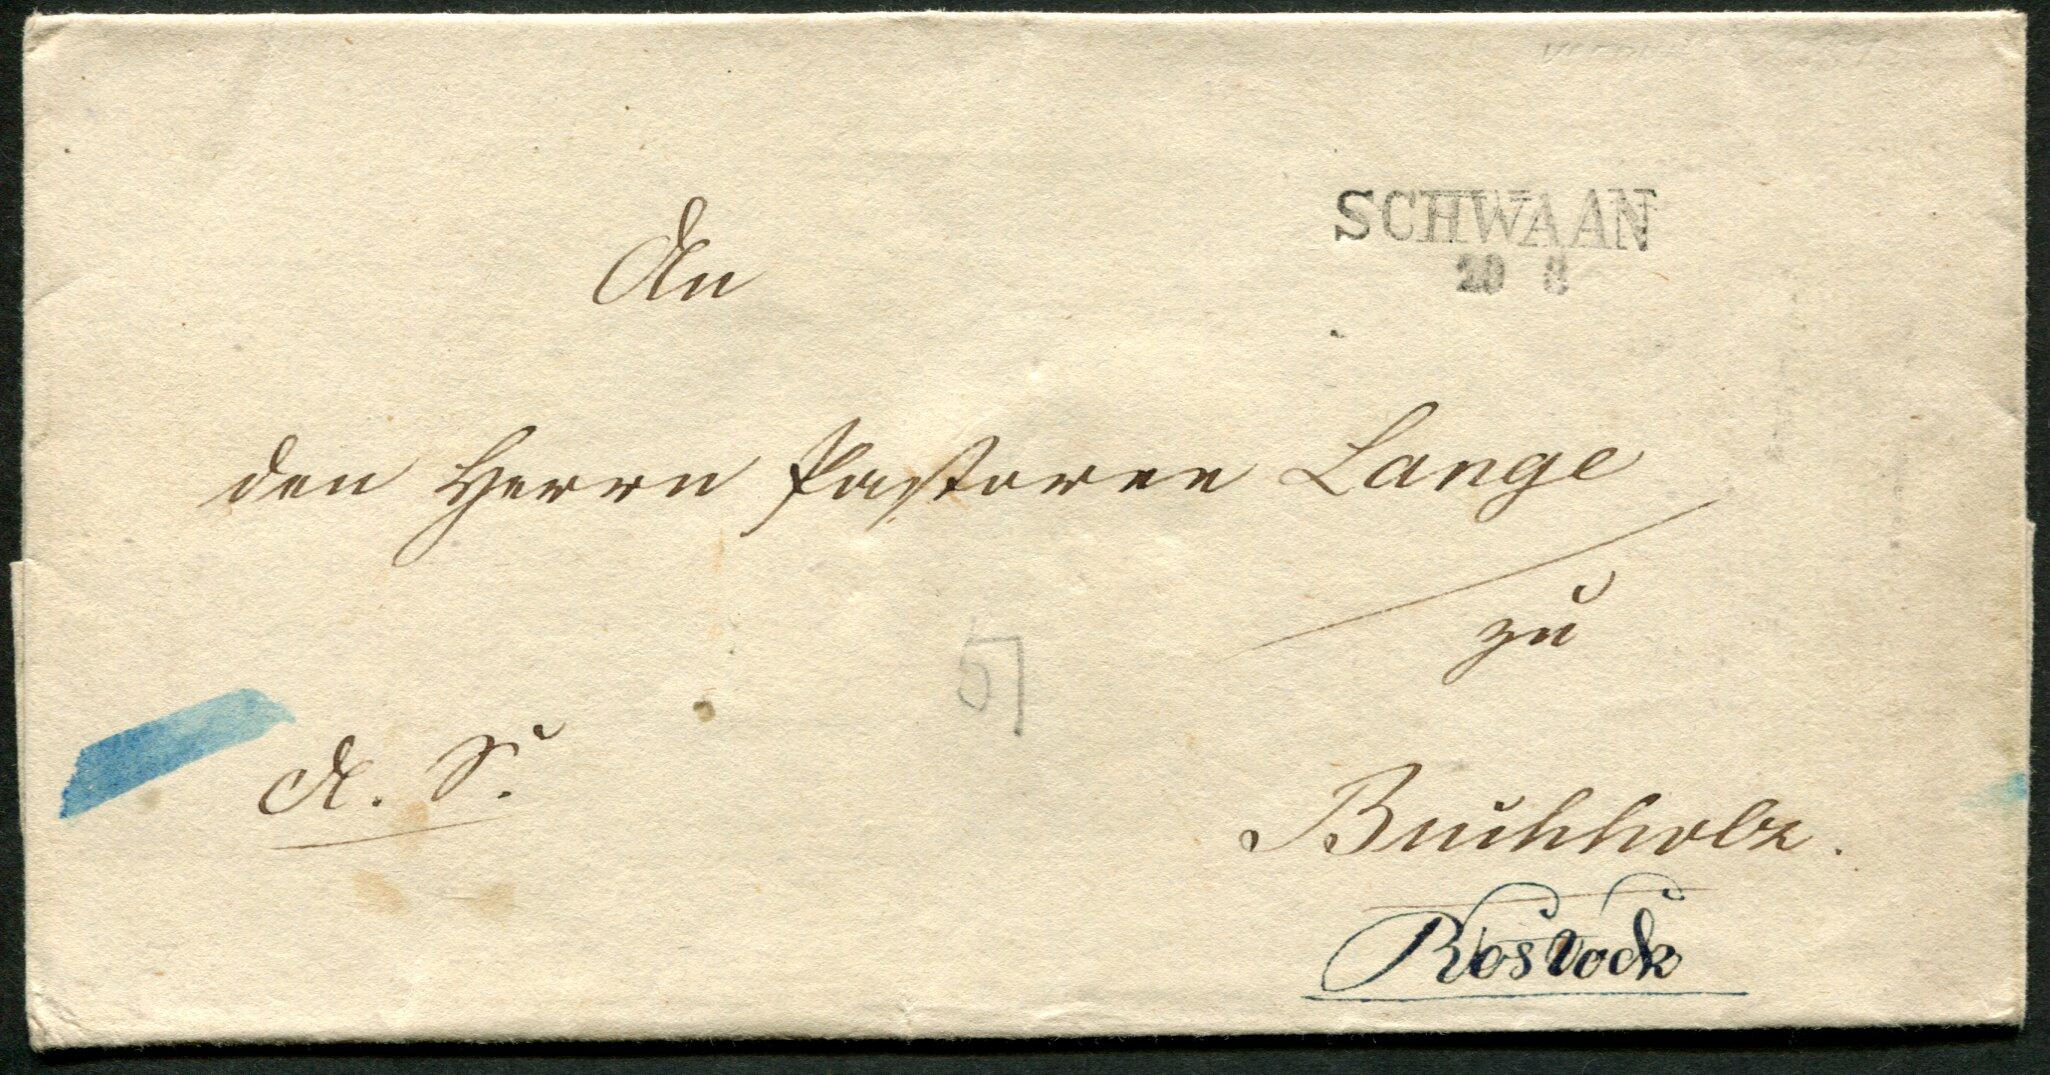 SCHWAAN
20 8
An
den Herrn Pastoren Lange
zu
57
Buchholz.
Rostock